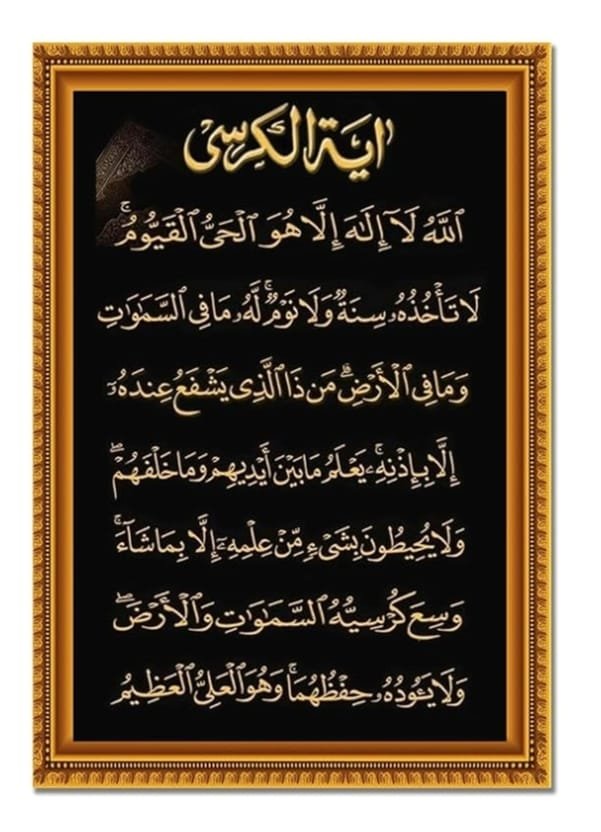 اية الكرسى
ٱللَّهُ لَآ إِلَٰهَ إِلَّا هُوَ ٱلْحَىُّ ٱلْقَيُّومُ ۚ
لَا تَأْخُذُهُۥ سِنَةٌ وَلَا نَوْمٌ ۚ لَّهُۥ مَا فِى ٱلسَّمَٰوَٰتِ
وَمَا فِى ٱلْأَرْضِ ۗ مَن ذَا ٱلَّذِى يَشْفَعُ عِندَهُۥٓ
إِلَّا بِإِذْنِهِۦ ۚ يَعْلَمُ مَا بَيْنَ أَيْدِيهِمْ وَمَا خَلْفَهُمْ ۖ
وَلَا يُحِيطُونَ بِشَىْءٍ مِّنْ عِلْمِهِۦٓ إِلَّا بِمَا شَآءَ ۚ
وَسِعَ كُرْسِيُّهُ ٱلسَّمَٰوَٰتِ وَٱلْأَرْضَ ۖ
وَلَا يَـُٔودُهُۥ حِفْظُهُمَا ۚ وَهُوَ ٱلْعَلِىُّ ٱلْعَظِيمُ